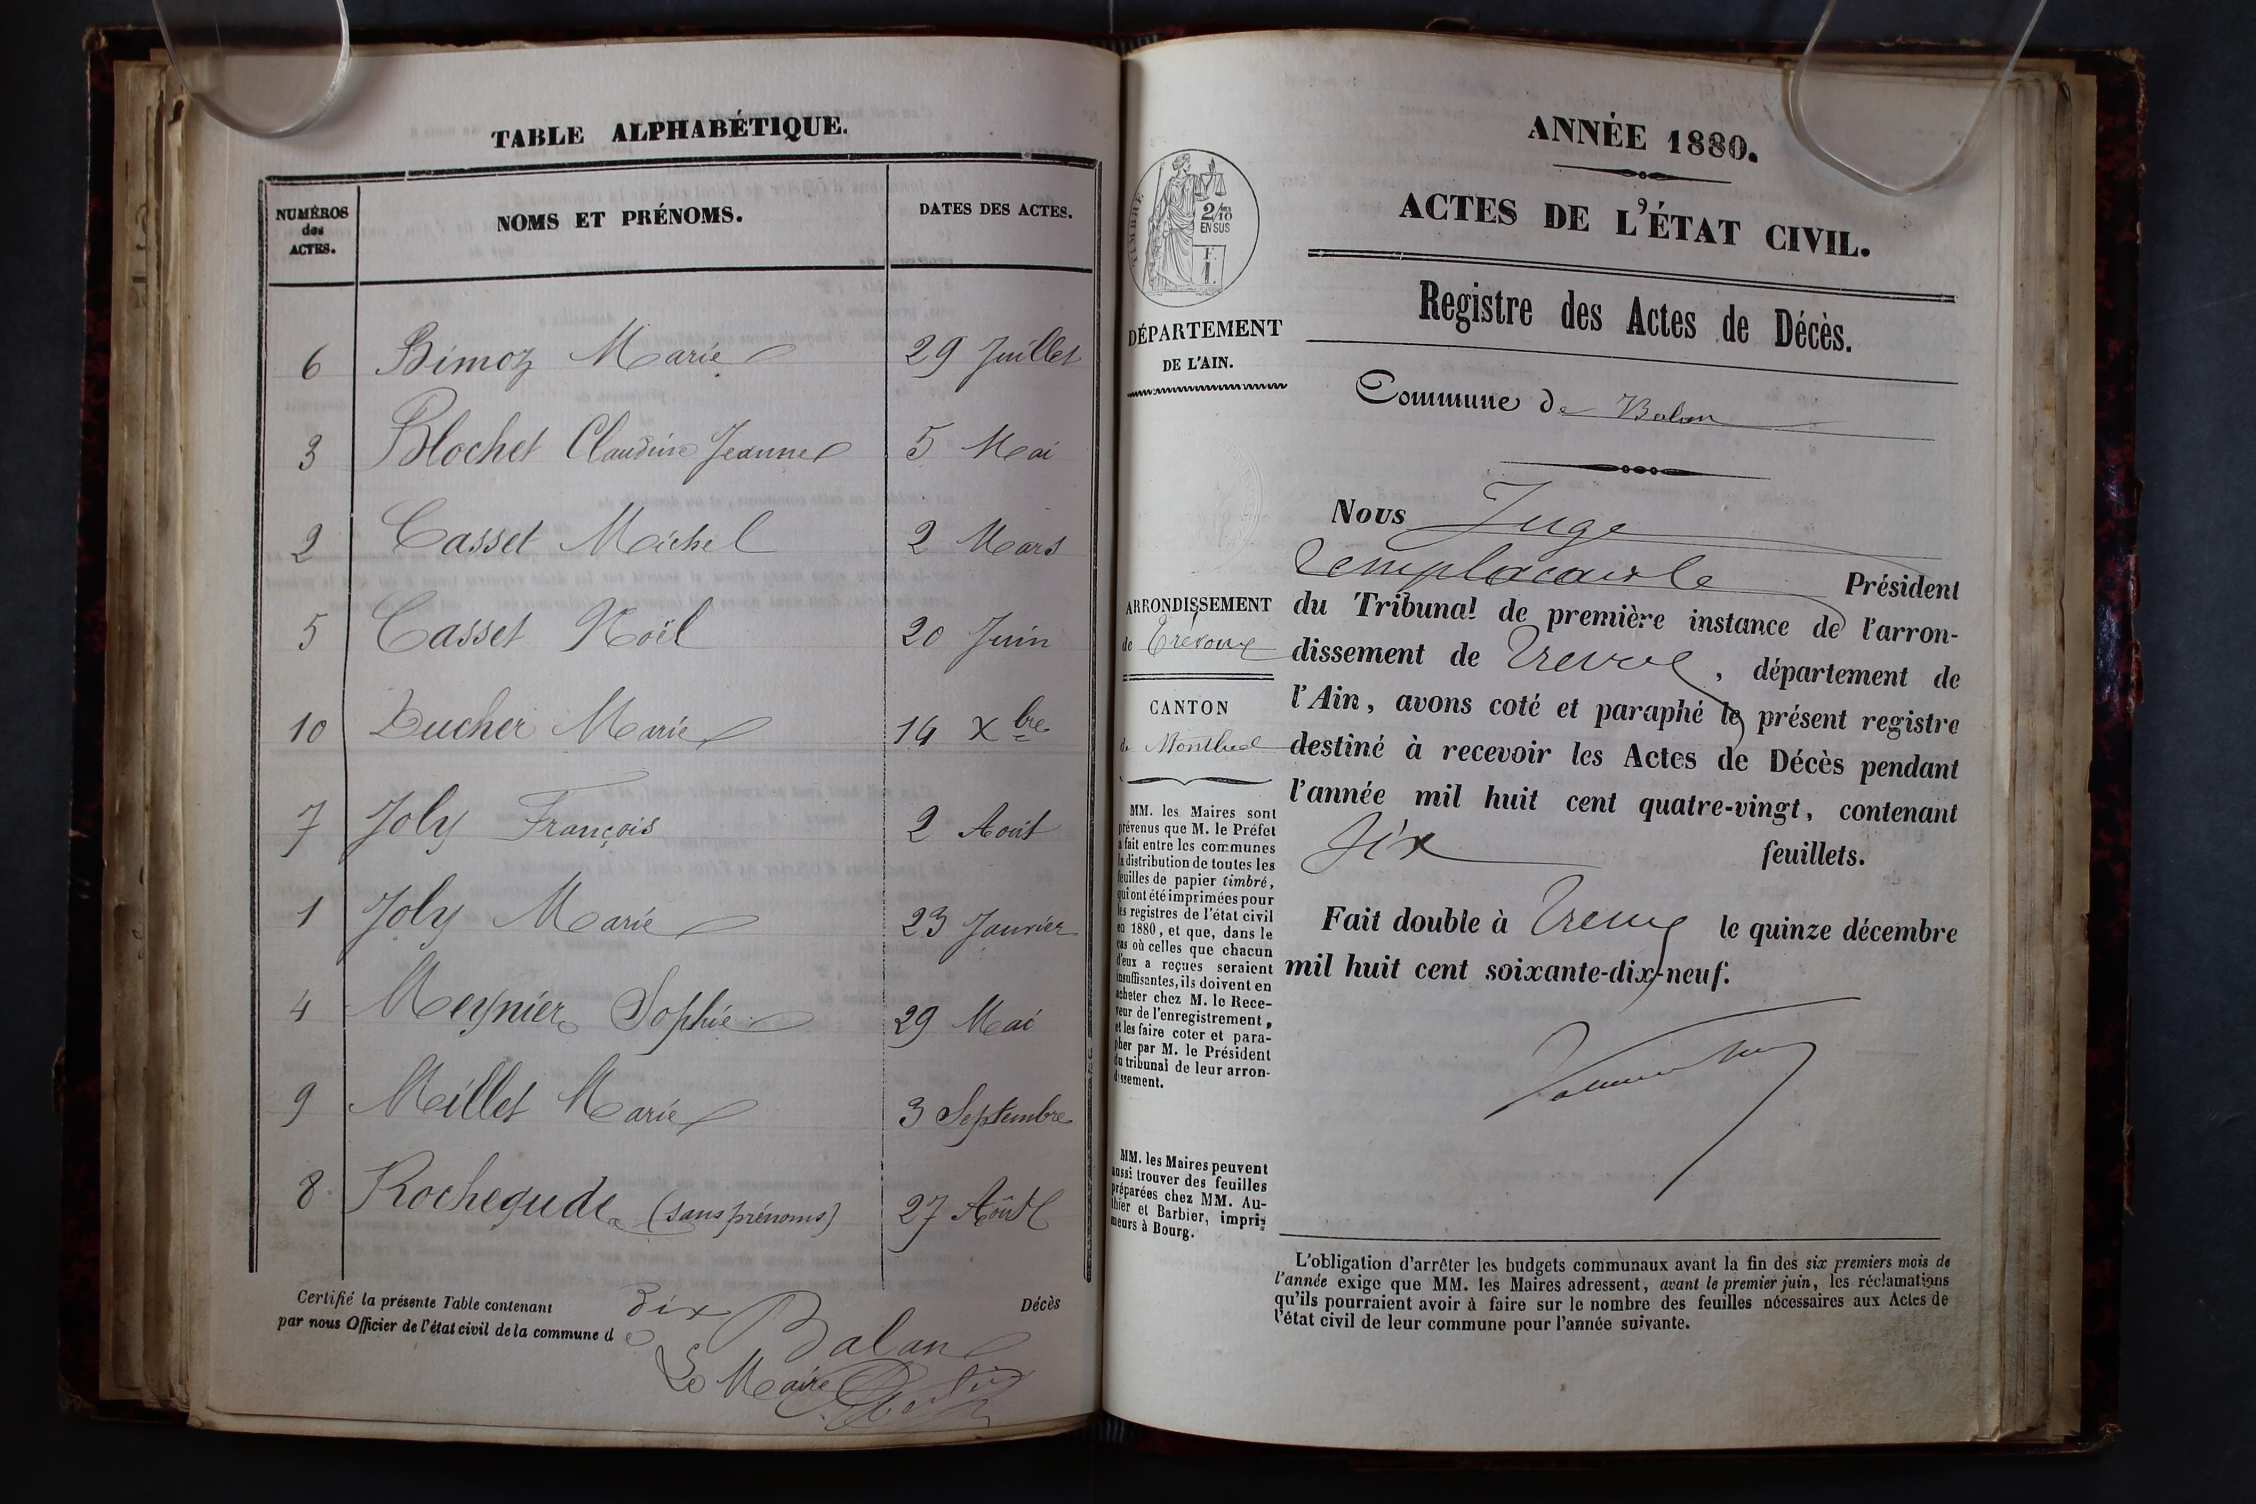 TABLE ALPHABÉTIQUE.
NUMÉROS des ACTES. NOMS ET PRÉNOMS. DATES DES ACTES.
6 Bimoz Marie 29 Juillet
3 Blochet Claudine Jeanne 5 Mai
2 Casset Michel 2 Mars
5 Casset Noël 20 Juin
10 Ducher Marie 14 Xbre
7 Joly François 2 Août
1 Joly Marie 23 Janvier
4 Meynier Sophie 29 Mai
9 Millet Marie 3 Septembre
8 Rochegude (sans prénoms) 27 Août
Certifié la présente Table contenant dix Décès
par nous Officier de l'état civil de la commune de Balan
Le Maire
TIMBRE
2/10 EN SUS
DÉPARTEMENT
DE L'AIN.
ARRONDISSEMENT
de Trévoux
CANTON
de Montluel
MM. les Maires sont
prévenus que M. le Préfet
a fait entre les communes
la distribution de toutes les
feuilles de papier timbré,
qui ont été imprimées pour
les registres de l'état civil
en 1880, et que, dans le
cas où celles que chacun
d'eux a reçues seraient
insuffisantes, ils doivent en
acheter chez M. le Rece-
veur de l'enregistrement,
et les faire coter et para-
pher par M. le Président
du tribunal de leur arron-
dissement.
MM. les Maires peuvent
aussi trouver des feuilles
préparées chez MM. Au-
thier et Barbier, impri-
meurs à Bourg.
ANNÉE 1880.
ACTES DE L'ÉTAT CIVIL.
Registre des Actes de Décès.
Commune de Balan
Nous Juge
remplaçant le Président
du Tribunal de première instance de l'arron-
dissement de Trévoux, département de
l'Ain, avons coté et paraphé le présent registre
destiné à recevoir les Actes de Décès pendant
l'année mil huit cent quatre-vingt, contenant
six feuillets.
Fait double à Trévoux le quinze décembre
mil huit cent soixante-dix-neuf.
L'obligation d'arrêter les budgets communaux avant la fin des six premiers mois de
l'année exige que MM. les Maires adressent, avant le premier juin, les réclamations
qu'ils pourraient avoir à faire sur le nombre des feuilles nécessaires aux Actes de
l'état civil de leur commune pour l'année suivante.